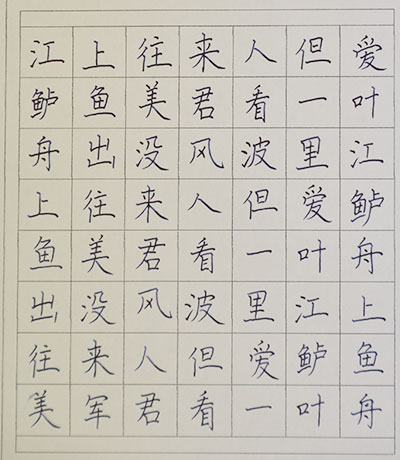 江上往来人但爱
鲈鱼美君看一叶
舟出没风波里江
上往来人但爱鲈
鱼美君看一叶舟
出没风波里江上
往来人但爱鲈鱼
美军君看一叶舟